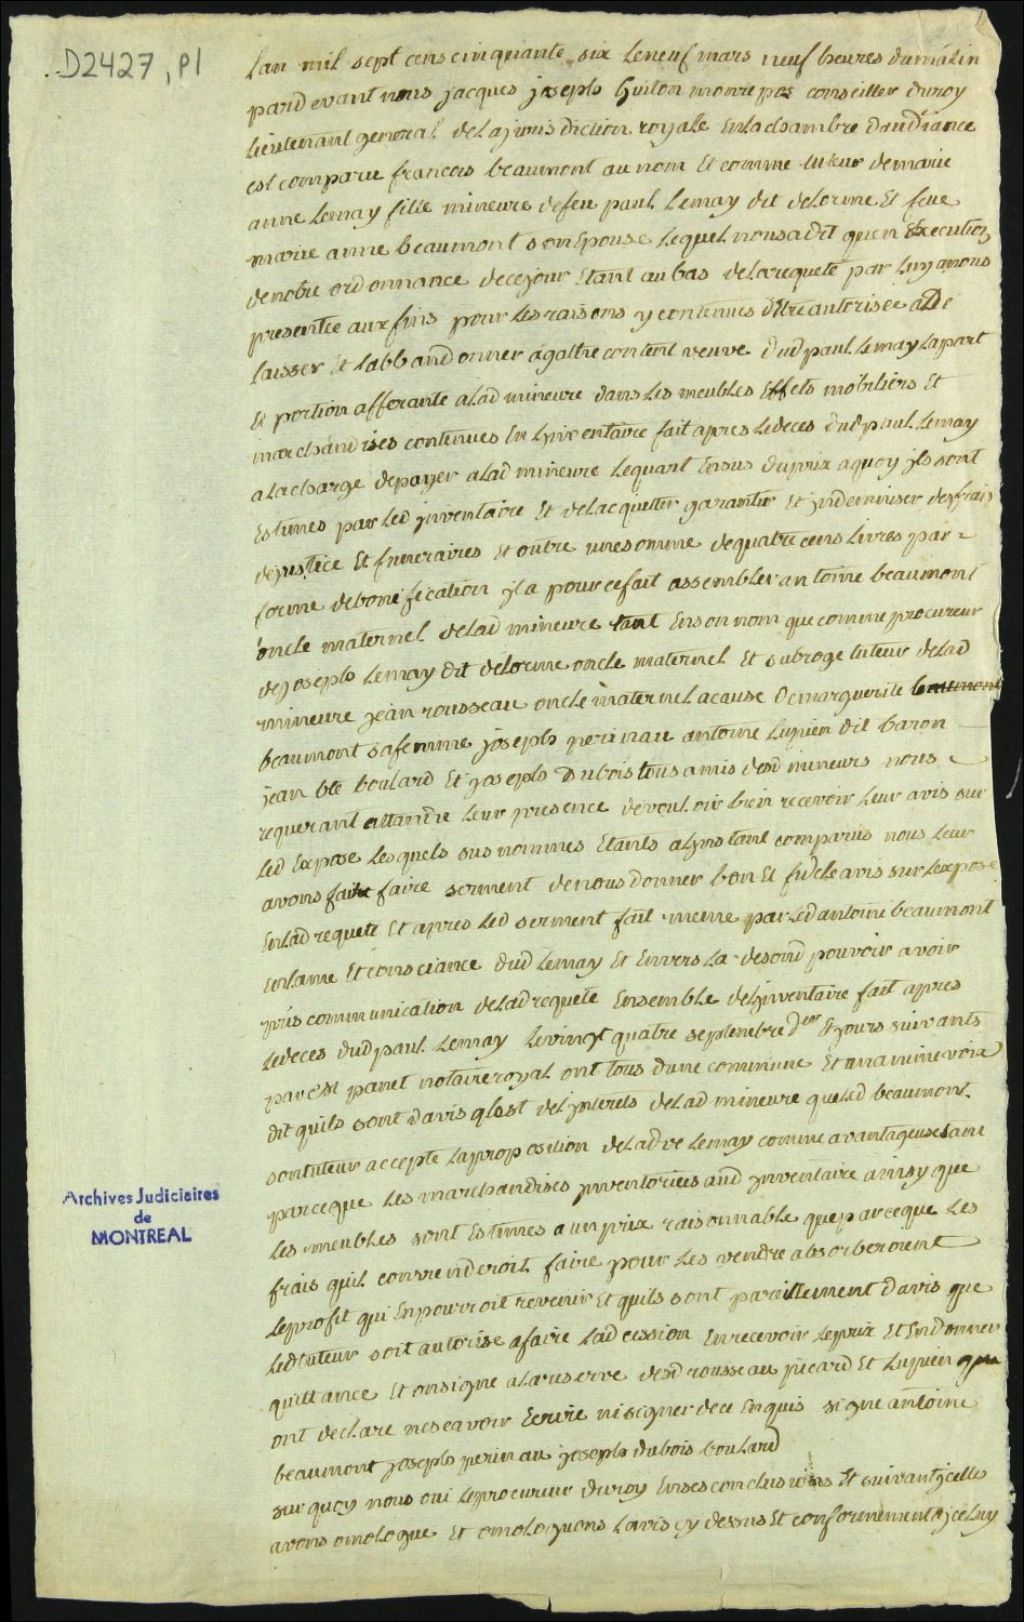 D2427, P1
Lan mil sept cens cinquante six le neuf mars neuf heures du matin
pardevant nous jacques joseph Guiton monrepos conseiller du roy
lieutenant general de la jurisdiction royale en la chambre daudiance
est comparu francois beaumont au nom Et comme tuteur de marie
anne Lemay fille mineure defeu paul Lemay dit delorme Et feue
marie anne beaumont son Epouse lequel nous a dit quen Execution
de notre ordonnance de ce jour Etant au bas de la requete par luy a nous
presentee aux fins pour les raisons y contenues detre autorisee a De
laisser Et labbandonner a gattre content veuve dud paul Lemay la part
Et portion afferante a lad mineure dans les meubles Effets mobiliers Et
marchandises contenues En Lynventaire fait apres le deces dud paul Lemay
a la charge de payer a lad mineure le quart Ensus du prix a quoy jls sont
Estimes par led jnventaire Et de lacquitter garantir Et jndemniser des frais
de justice Et funeraires Et outre une somme de quatre cens Livres par
forme de bonification jl a pour ce fait assembler antoine beaumont
oncle maternel de lad mineure tant En son nom que comme procureur
de joseph Lemay dit delorme oncle maternel Et subroge tuteur de lad
mineure jean rousseau oncle maternel a cause De marguerite beaumont
beaumont sa femme joseph perinau antoine Lupien dit baron
jean bte boulard Et joseph Dubois tous amis desd mineurs nous
requerant attandre leur presence de vouloir bien recevoir leur avis sur
led Expose lesquels susnommes Etants a Lynstant comparus nous leur
avons fait faire serment de nous donner bon Et fidele avis sur lexpose
En lad requete Et apres led serment fait meme par led antoine beaumont
en lame Et consciance dud Lemay Et Envers La desond pouvoir avoir
pris communication de lad requete Ensemble de Lynventaire fait apres
le deces dud paul Lemay le vingt quatre septembre der Et jours suivants
par Me panet notaire royal ont tous dune commune Et unanime voix
dit quils sont davis qlest de Lynterets de lad mineure que led beaumont
son tuteur accepte la proposition de lad ve Lemay comme avantageuse tant
parceque les marchandises jnventoriees aud jnventaire ainsy que
les meubles sont Estimes a un prix raisonnable que parceque les
frais quil conviendroit faire pour les vendre absorberoient
le profit qui En pourroit revenir Et quils sont pareillement davis que
led tuteur soit autorise a faire lad cession En recevoir le prix Et En donner
quittance Et ont signe a la reserve desd rousseau picard Et Lupien qui
ont declare ne scavoir Ecrire ni signer de ce Enquis signe antoine
beaumont joseph perinau joseph dubois boulard
sur quoy nous oui le procureur du roy En ses conclusions Et suivant jcelles
avons omologue Et omologuons lavis cy dessus Et conformement a jceluy
Archives Judiciaires
de
MONTREAL